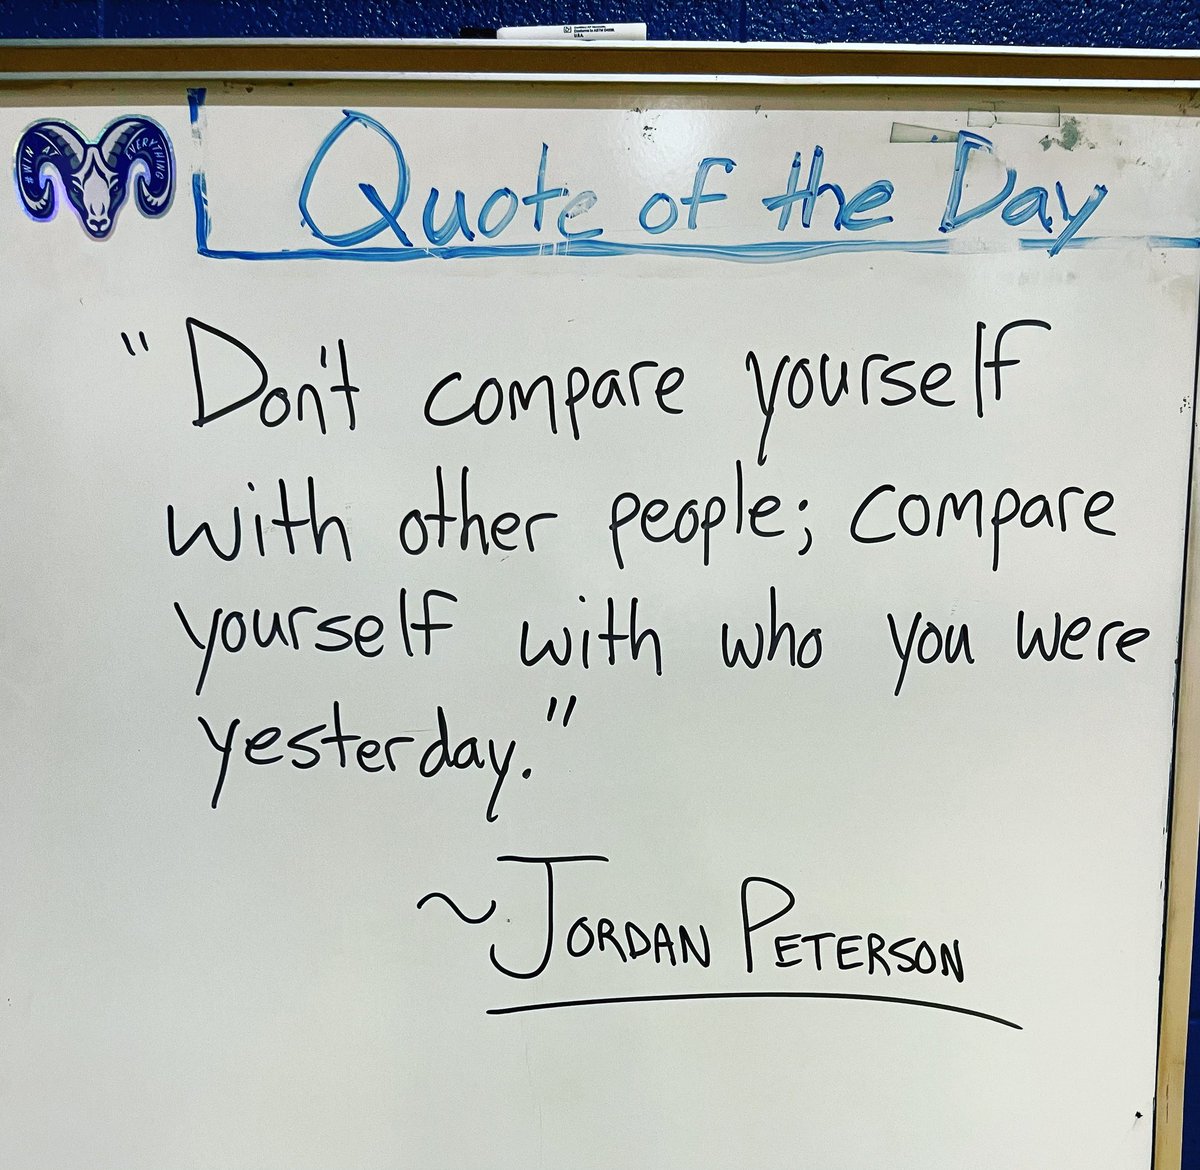 #WIN AT EVERYTHING
Quote of the Day
"Don't compare yourself
with other people; compare
yourself with who you were
yesterday."
~JORDAN PETERSON